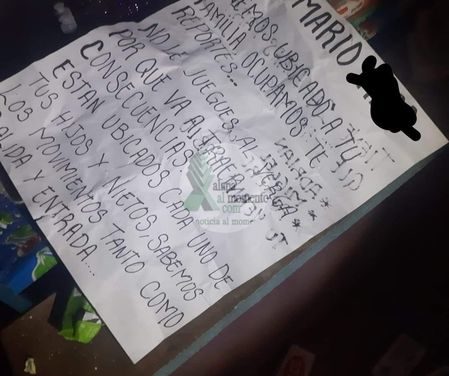 MARIO
UBICADO A TU
FAMILIA OCUPAMOS TE
REPORTES...
NO LE JUEGUES AL
POR QUE VA A
CONSECUENCIAS
ESTAN UBICADOS CADA UNO DE
TUS HIJOS Y NIETOS, SABEMOS
LOS MOVIMIENTOS TANTO COMO
SALIDA Y ENTRADA...
al momento
.com
noticia al mome